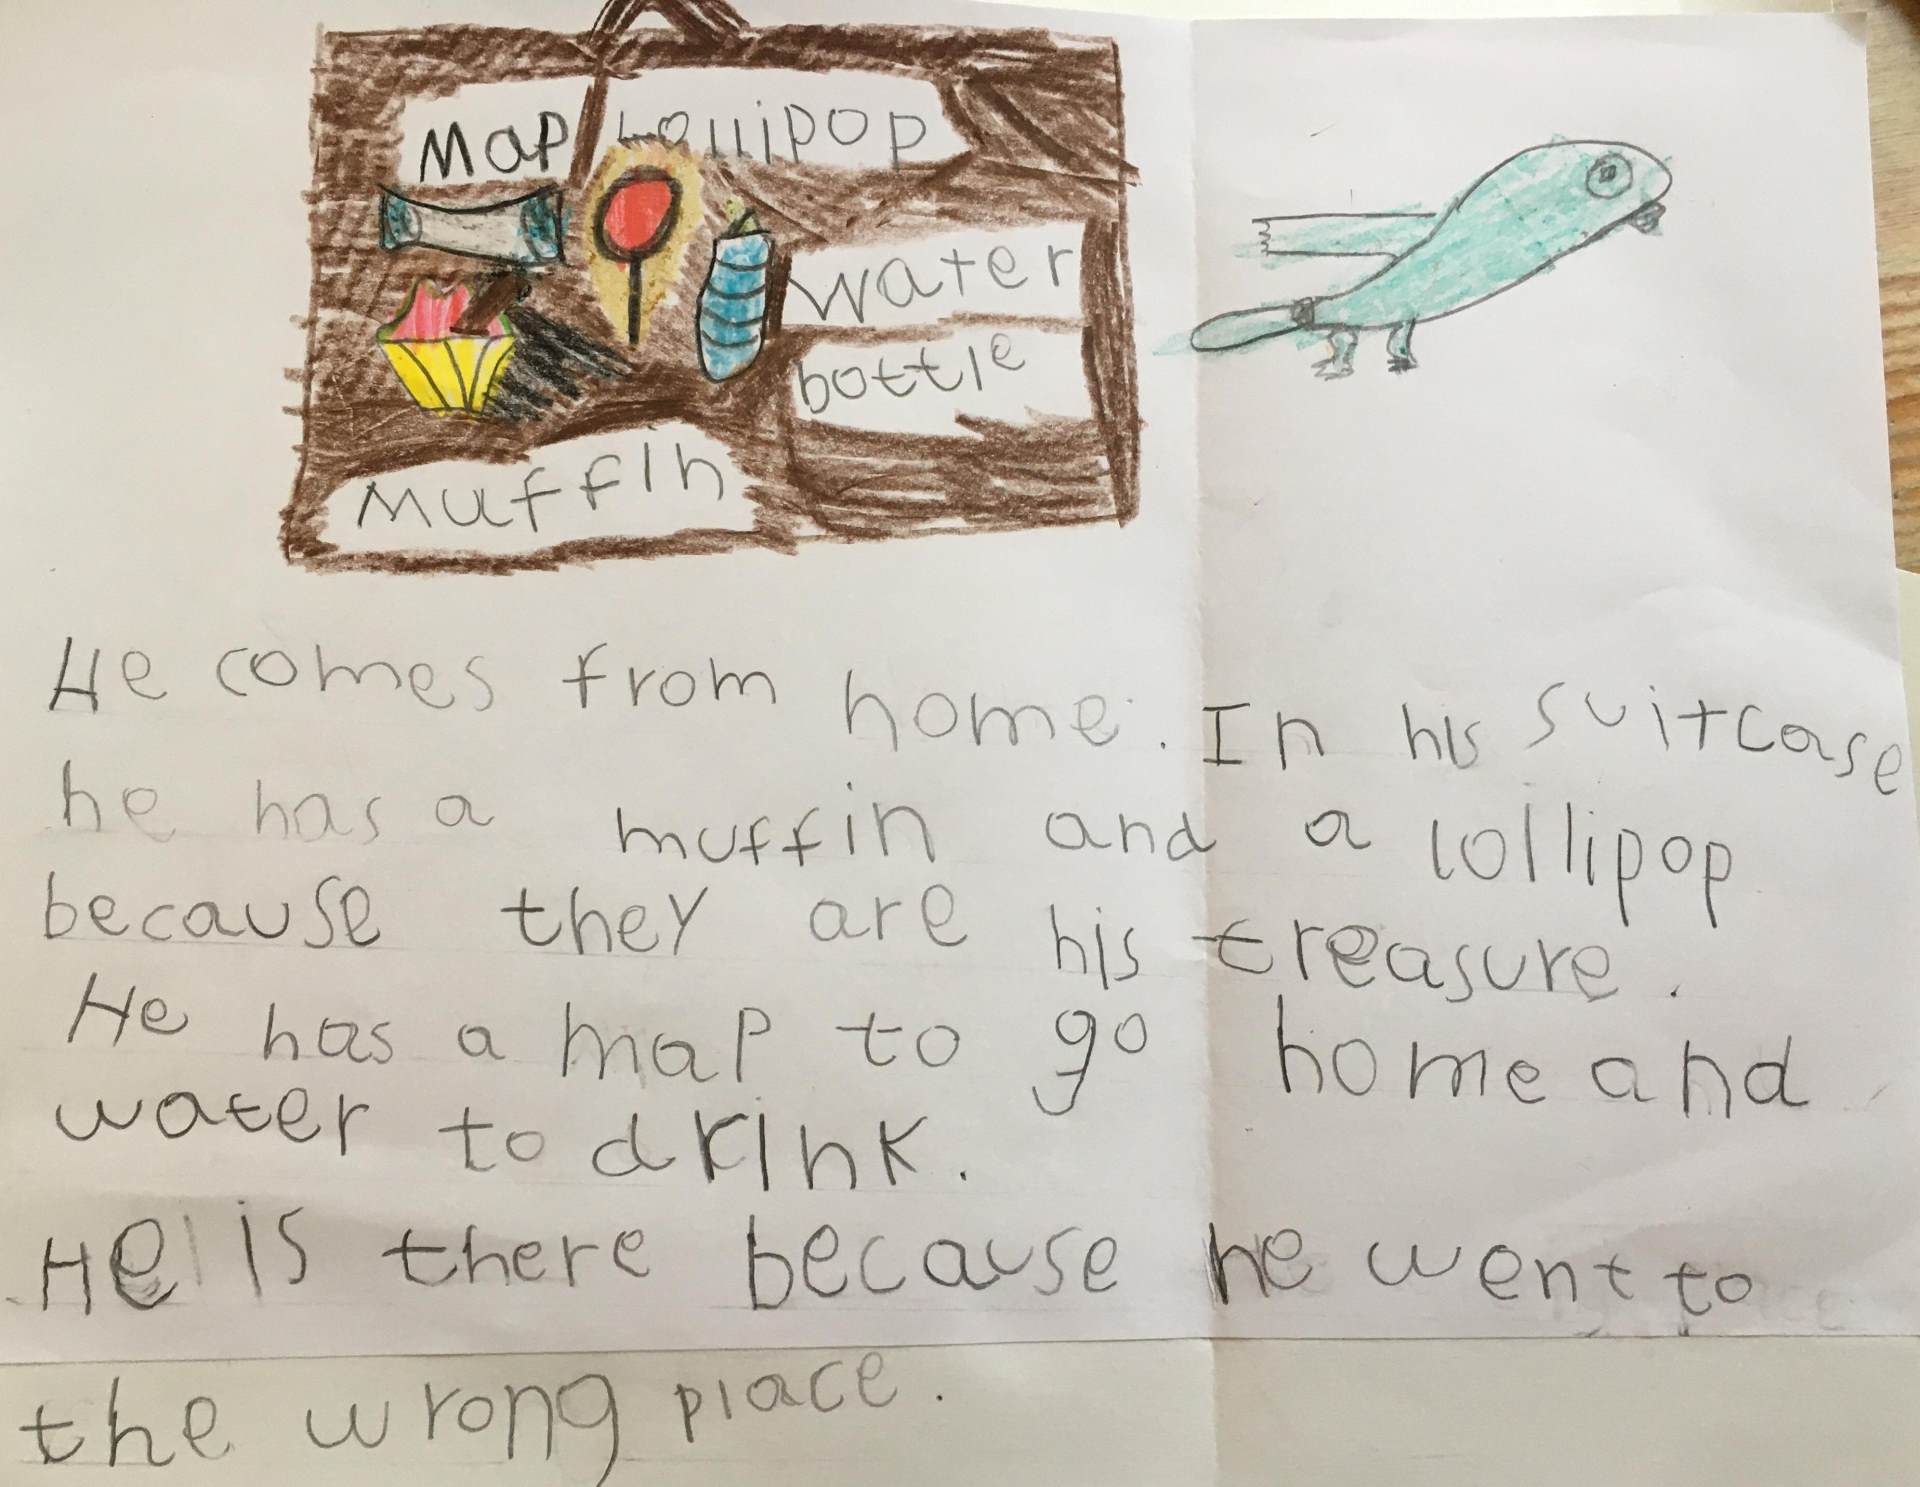 Map Lollipop
water
bottle
Muffin
He comes from home. In his suitcase
he has a muffin and a lollipop
because they are his treasure.
He has a map to go home and
water to drink.
He is there because he went to
the wrong place.